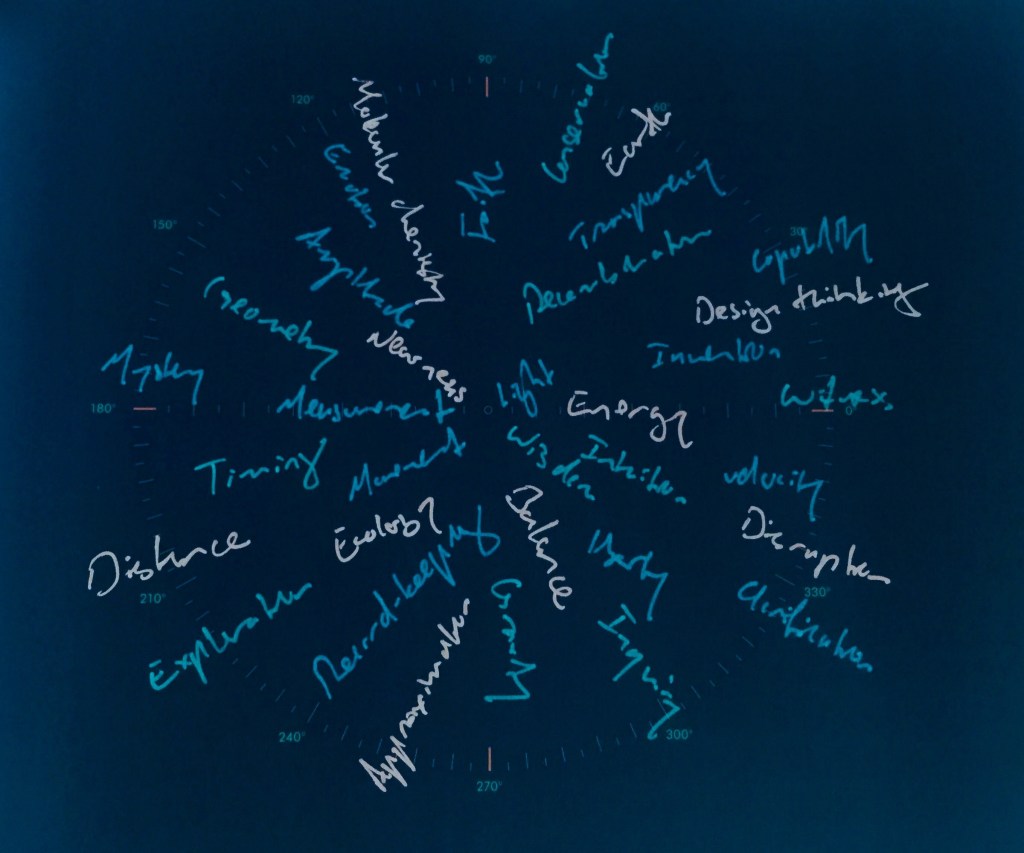 90°
120°
60°
Molecular chemistry
Conservation
Earth
Faith
Transparency
150°
30°
Amplitude
Capability
Geometry
Decarbonisation
Design thinking
Nearness
Invention
Mystery
Light
180°
Measurement
Energy
0°
Wisdom
Intuition
Timing
Movement
velocity
Distance
Ecology
Balance
Disruption
210°
Record-keeping
Liberty
330°
Exploration
Curiosity
Inquiry
Clarification
Approximation
240°
300°
270°